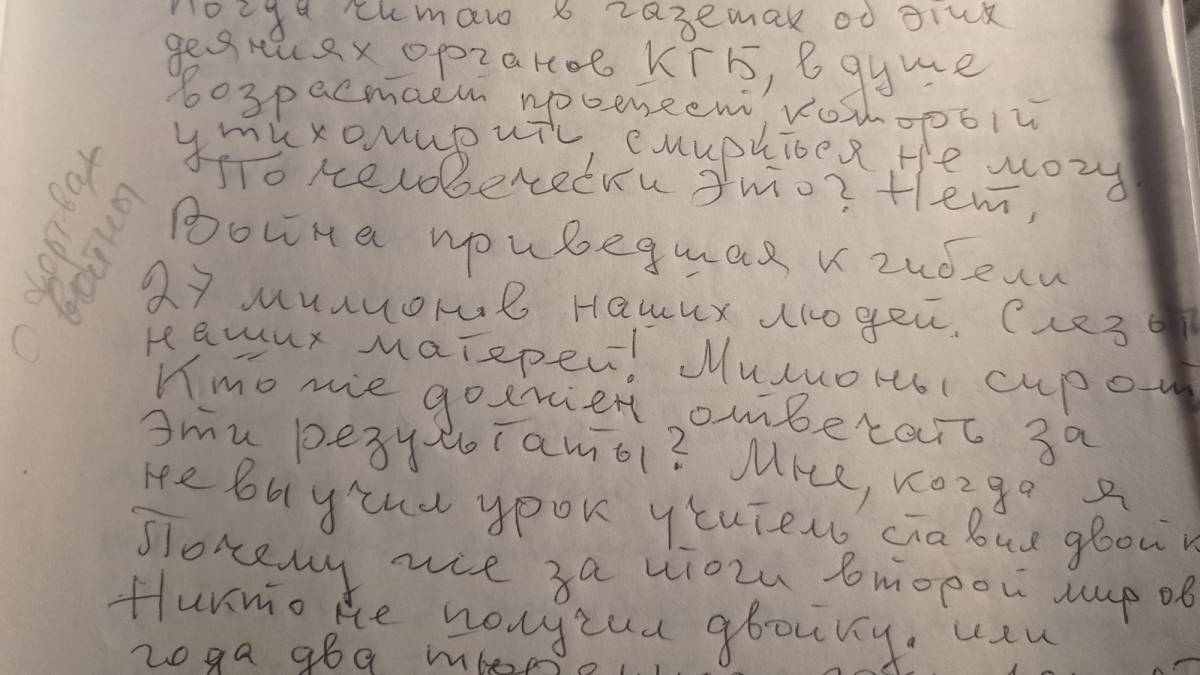 Когда читаю в газетах об этих
деяниях органов КГБ, в душе
возрастает протест, который
утихомирить, смириться не могу.
По человечески это? Нет,
О жертвах
войны
Война приведшая к гибели
27 милионов наших людей. Слезы
наших матерей! Милионы сирот
Кто же должен отвечать за
эти результаты? Мне, когда я
не выучил урок учитель ставил двойк
Почему же за итоги второй миров
Никто не получил двойку. или
года два